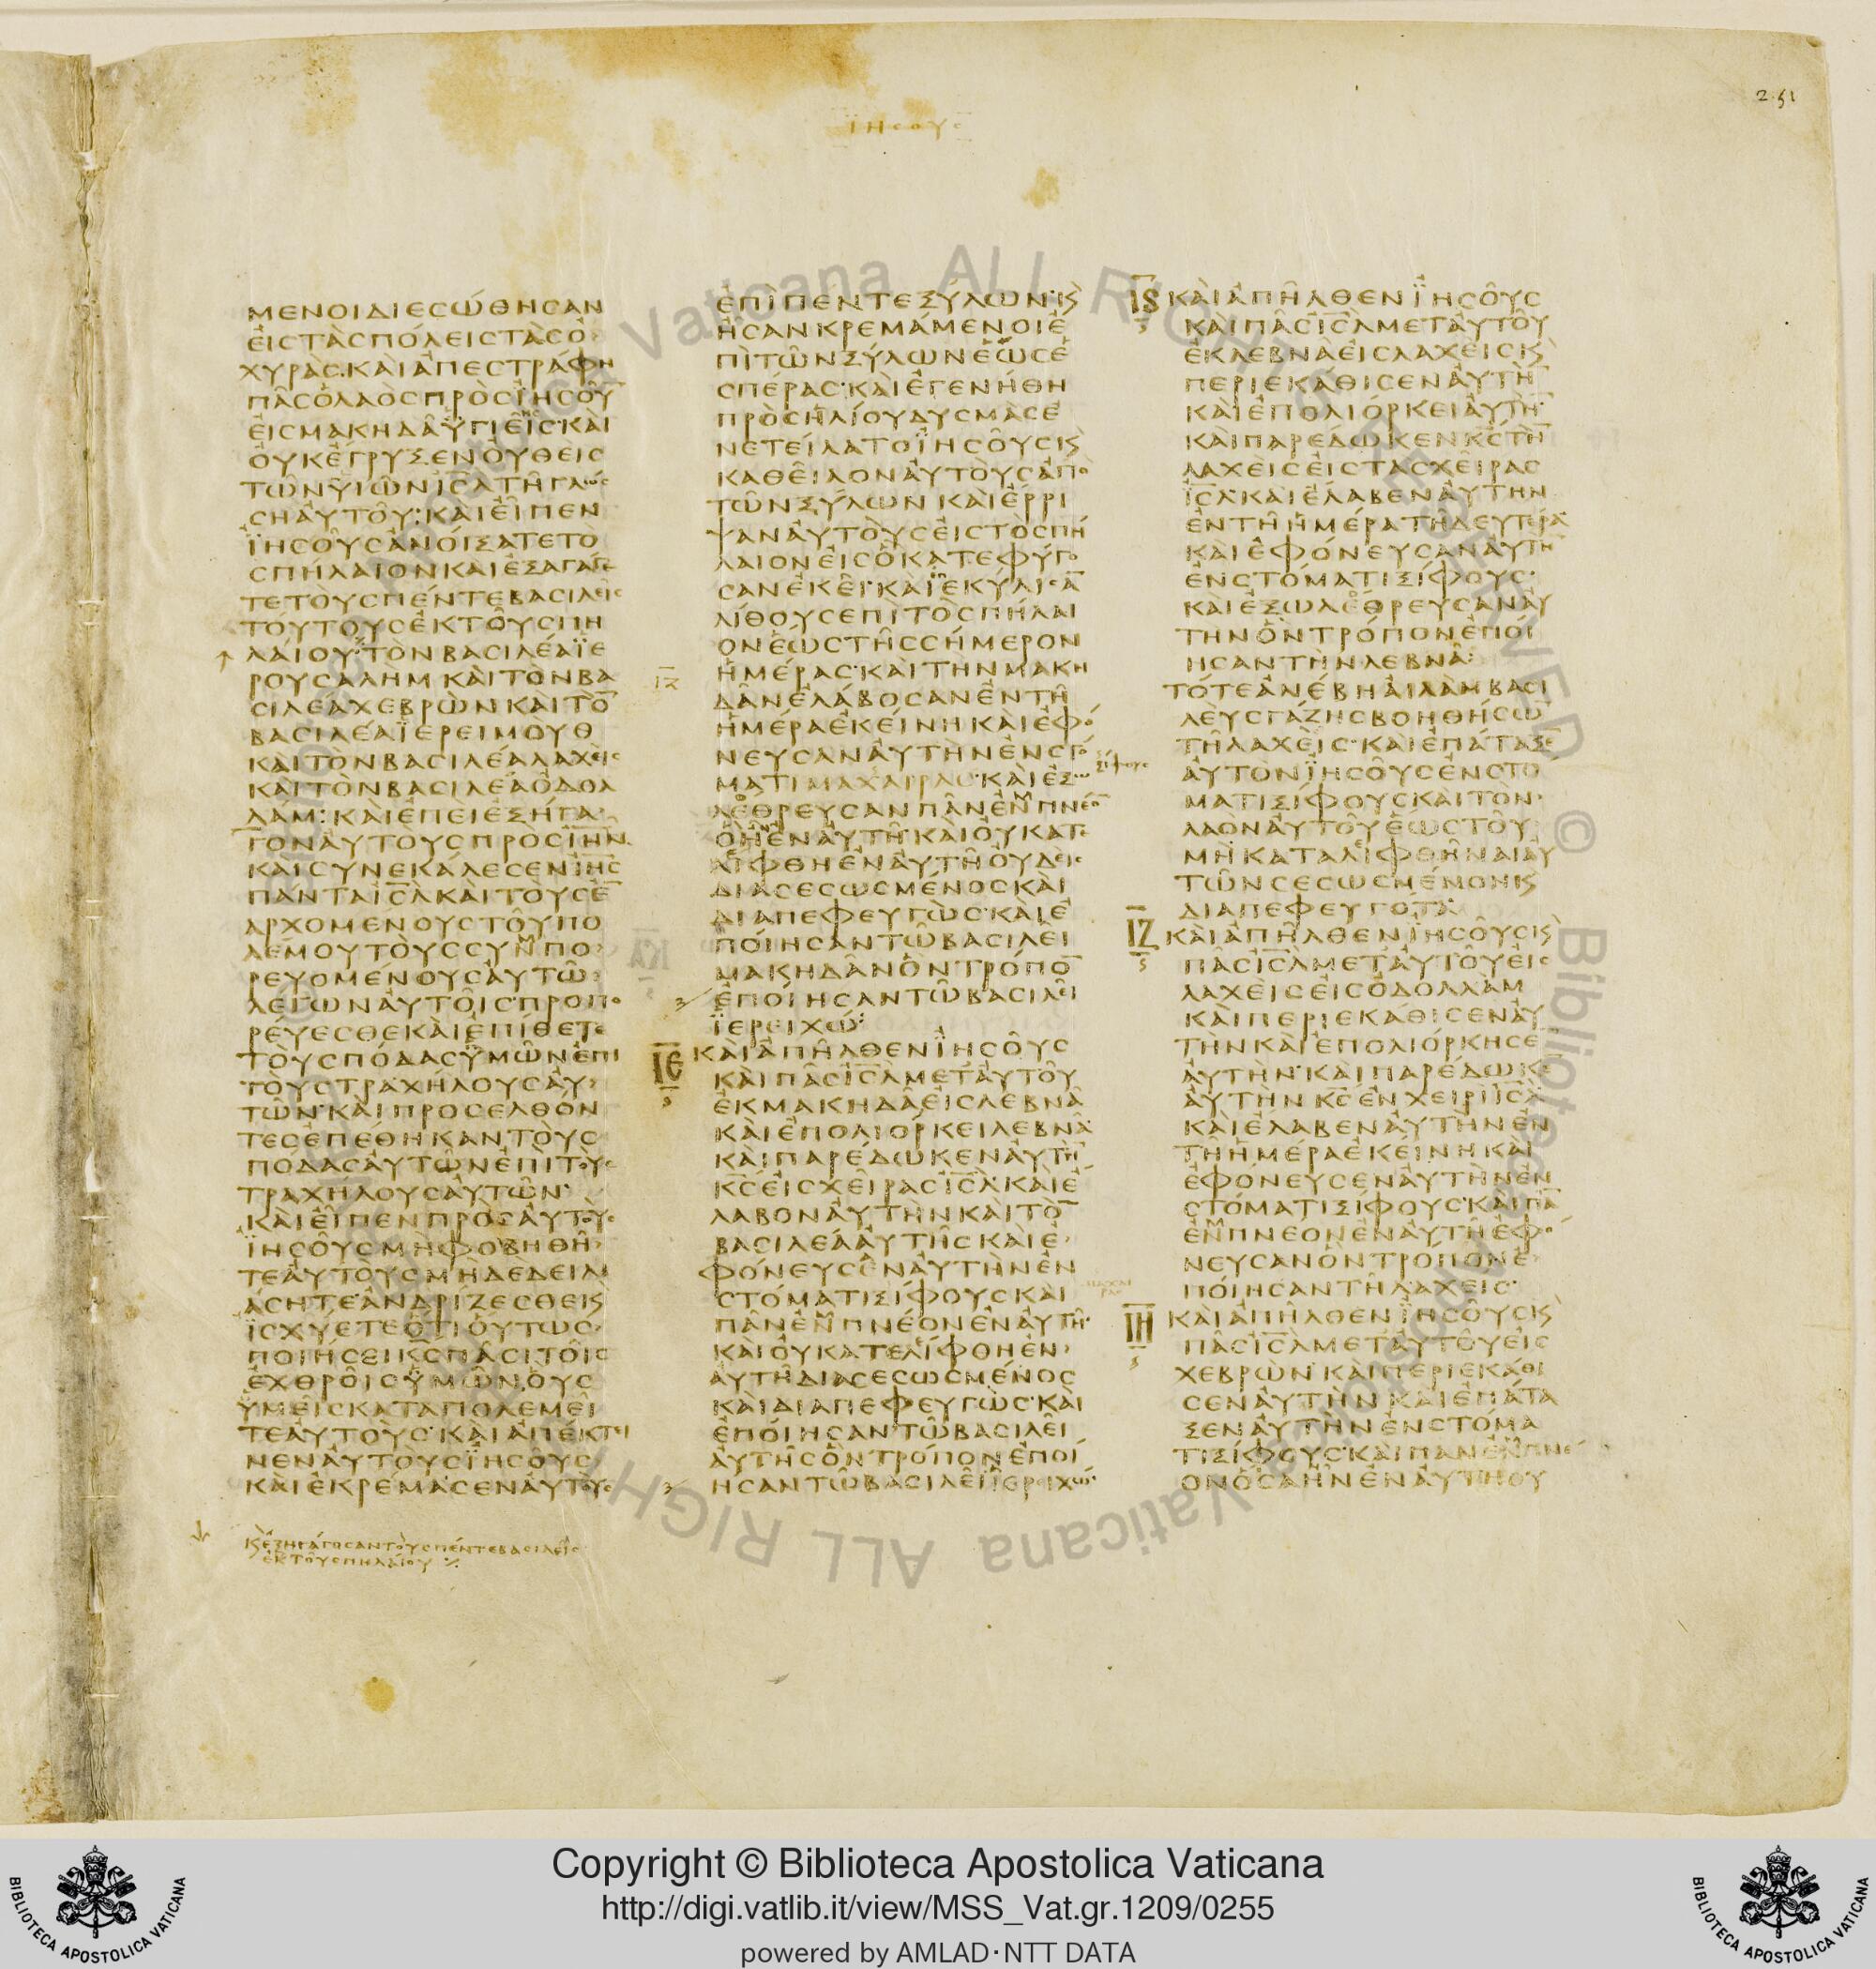 251
ΙΗΣΟΥΣ
ΜΕΝΟΙΔΙΕΣΩΘΗΣΑΝ
ΕΙΣΤΑΣΠΟΛΕΙΣΤΑΣΟ
ΧΥΡΑΣ·ΚΑΙΑΠΕΣΤΡΑΦΗ
ΠΑΣΟΛΑΟΣΠΡΟΣΙΗΣΟΥ̅
ΕΙΣΜΑΚΗΔΑΥΓΙΕΙΣ·ΚΑΙ
ΟΥΚΕΓΡΥΞΕΝΟΥΘΕΙΣ
ΤΩΝΥΙΩΝΙΣ̅Λ̅ΤΗΓΛΩΣ
ΣΗΑΥΤΟΥ:ΚΑΙΕΙΠΕΝ
ΙΗΣΟΥΣΑΝΟΙΞΑΤΕΤΟ
ΣΠΗΛΑΙΟΝΚΑΙΕΞΑΓΑΓΕ
ΤΕΤΟΥΣΠΕΝΤΕΒΑΣΙΛΕΙΣ
ΤΟΥΤΟΥΣΕΚΤΟΥΣΠΗ
ΛΑΙΟΥ:ΤΟΝΒΑΣΙΛΕΑΪΕ
ΡΟΥΣΑΛΗΜΚΑΙΤΟΝΒΑ
ΣΙΛΕΑΧΕΒΡΩΝΚΑΙΤΟ̅
ΒΑΣΙΛΕΑΪΕΡΕΙΜΟΥΘ
ΚΑΙΤΟΝΒΑΣΙΛΕΑΛΑΧΕΙΣ
ΚΑΙΤΟΝΒΑΣΙΛΕΑΟΔΟΛ
ΛΑΜ:ΚΑΙΕΠΕΙΕΞΗΓΑ
ΓΟΝΑΥΤΟΥΣΠΡΟΣΙ̅Η̅Ν̅
ΚΑΙΣΥΝΕΚΑΛΕΣΕΝΙΗΣ
ΠΑΝΤΑΙΣ̅Λ̅ΚΑΙΤΟΥΣΕ̅
ΑΡΧΟΜΕΝΟΥΣΤΟΥΠΟ
ΛΕΜΟΥΤΟΥΣΣΥΝΠΟ
ΡΕΥΟΜΕΝΟΥΣΑΥΤΩ
ΛΕΓΩΝΑΥΤΟΙΣ·ΠΡΟΠΟ
ΡΕΥΕΣΘΕΚΑΙΕΠΙΘΕΤΕ
ΤΟΥΣΠΟΔΑΣΥΜΩΝΕΠΙ
ΤΟΥΣΤΡΑΧΗΛΟΥΣΑΥ
ΤΩΝ·ΚΑΙΠΡΟΣΕΛΘΟΝ
ΤΕΣΕΠΕΘΗΚΑΝΤΟΥΣ
ΠΟΔΑΣΑΥΤΩΝΕΠΙΤΟΥΣ
ΤΡΑΧΗΛΟΥΣΑΥΤΩΝ·
ΚΑΙΕΙΠΕΝΠΡΟΣΑΥΤΟΥΣ
ΙΗΣΟΥΣΜΗΦΟΒΗΘΗ
ΤΕΑΥΤΟΥΣΜΗΔΕΔΕΙΛΙ
ΑΣΗΤΕ·ΑΝΔΡΙΖΕΣΘΕΙϗ
ΙΣΧΥΕΤΕΟΤΙΟΥΤΩΣ
ΠΟΙΗΣΕΙΚ̅Σ̅ΠΑΣΙΤΟΙΣ
ΕΧΘΡΟΙΣΥΜΩΝΟΥΣ
ΥΜΕΙΣΚΑΤΑΠΟΛΕΜΕΙ
ΤΕΑΥΤΟΥΣ·ΚΑΙΑΠΕΚΤΕΙ
ΝΕΝΑΥΤΟΥΣΙΗΣΟΥΣ
ΚΑΙΕΚΡΕΜΑΣΕΝΑΥΤΟΥΣ
ϗΕΞΗΓΑΓΟΣΑΝΤΟΥΣΠΕΝΤΕΒΑΣΙΛΕΙΣ
ΕΚΤΟΥΣΠΗΛΑΙΟΥ
ΕΠΙΠΕΝΤΕΞΥΛΩΝ·ϗ
ΗΣΑΝΚΡΕΜΑΜΕΝΟΙΕ
ΠΙΤΩΝΞΥΛΩΝΕΩΣΕ
ΣΠΕΡΑΣ·ΚΑΙΕΓΕΝΗΘΗ
ΠΡΟΣΗΛΙΟΥΔΥΣΜΑΣΕ
ΝΕΤΕΙΛΑΤΟΙΗΣΟΥΣϗ
ΚΑΘΕΙΛΟΝΑΥΤΟΥΣΑΠΟ
ΤΩΝΞΥΛΩΝΚΑΙΕΡΡΙ
ΨΑΝΑΥΤΟΥΣΕΙΣΤΟΣΠΗ
ΛΑΙΟΝΕΙΣΟΚΑΤΕΦΥΓΟ
ΣΑΝΕΚΕΙ·ΚΑΙΕΚΥΛΙΣΑ̅
ΛΙΘΟΥΣΕΠΙΤΟΣΠΗΛΑΙ
ΟΝΕΩΣΤΗΣΣΗΜΕΡΟΝ
ΗΜΕΡΑΣ·ΚΑΙΤΗΝΜΑΚΗ
ΔΑΝΕΛΑΒΟΣΑΝΕΝΤΗ
ΗΜΕΡΑΕΚΕΙΝΗΚΑΙΕΦΟ
ΝΕΥΣΑΝΑΥΤΗΝΕΝΣΤΟ
ΜΑΤΙΜΑΧΑΙΡΑΣ·ΚΑΙΕΞΩ ΞΙΦΟΥΣ
ΛΕΘΡΕΥΣΑΝΠΑΝΕΝΠΝΕΟ̅
ΟΗΝΕΝΑΥΤΗ·ΚΑΙΟΥΚΑΤΕ
ΛΙΦΘΗΕΝΑΥΤΗΟΥΔΕΙΣ
ΔΙΑΣΕΣΩΣΜΕΝΟΣΚΑΙ
ΔΙΑΠΕΦΕΥΓΩΣ·ΚΑΙΕ
ΠΟΙΗΣΑΝΤΩΒΑΣΙΛΕΙ
ΜΑΚΗΔΑΝΟΝΤΡΟΠΟ̅
ΕΠΟΙΗΣΑΝΤΩΒΑΣΙΛΕΙ
ΪΕΡΕΙΧΩ:
ΙΕ ΚΑΙΑΠΗΛΘΕΝΙΗΣΟΥΣ
ΚΑΙΠΑΣΙΣ̅Λ̅ΜΕΤΑΥΤΟΥ
ΕΚΜΑΚΗΔΑΕΙΣΛΕΒΝΑ
ΚΑΙΕΠΟΛΙΟΡΚΕΙΛΕΒΝΑ
ΚΑΙΠΑΡΕΔΩΚΕΝΑΥΤΗ̅
Κ̅Σ̅ΕΙΣΧΕΙΡΑΣΙΣ̅Λ̅·ΚΑΙΕ
ΛΑΒΟΝΑΥΤΗΝΚΑΙΤΟ̅
ΒΑΣΙΛΕΑΑΥΤΗΣΚΑΙΕ
ΦΟΝΕΥΣΕΝΑΥΤΗΝΕΝ
ΣΤΟΜΑΤΙΞΙΦΟΥΣΚΑΙ
ΠΑΝΕΝΠΝΕΟΝΕΝΑΥΤΗ·
ΚΑΙΟΥΚΑΤΕΛΙΦΘΗΕΝ
ΑΥΤΗΔΙΑΣΕΣΩΣΜΕΝΟΣ
ΚΑΙΔΙΑΠΕΦΕΥΓΩΣ·ΚΑΙ
ΕΠΟΙΗΣΑΝΤΩΒΑΣΙΛΕΙ
ΑΥΤΗΣΟΝΤΡΟΠΟΝΕΠΟΙ
ΗΣΑΝΤΩΒΑΣΙΛΕΙΪΕΡΕΙΧΩ·
ΙϚ ΚΑΙΑΠΗΛΘΕΝΙΗΣΟΥΣ
ΚΑΙΠΑΣΙΣ̅Λ̅ΜΕΤΑΥΤΟΥ
ΕΚΛΕΒΝΑΕΙΣΛΑΧΕΙΣϗ
ΠΕΡΙΕΚΑΘΙΣΕΝΑΥΤΗ̅
ΚΑΙΕΠΟΛΙΟΡΚΕΙΑΥΤΗ̅·
ΚΑΙΠΑΡΕΔΩΚΕΝΚ̅Σ̅ΤΗ̅
ΛΑΧΕΙΣΕΙΣΤΑΣΧΕΙΡΑΣ
ΙΣ̅Λ̅·ΚΑΙΕΛΑΒΕΝΑΥΤΗΝ
ΕΝΤΗΗΜΕΡΑΤΗΔΕΥΤΕΡΑ
ΚΑΙΕΦΟΝΕΥΣΑΝΑΥΤΗ̅
ΕΝΣΤΟΜΑΤΙΞΙΦΟΥΣ·
ΚΑΙΕΞΩΛΕΘΡΕΥΣΑΝΑΥ
ΤΗΝΟΝΤΡΟΠΟΝΕΠΟΙ
ΗΣΑΝΤΗΝΛΕΒΝΑ:
ΤΟΤΕΑΝΕΒΗΑΙΛΑΜΒΑΣΙ
ΛΕΥΣΓΑΖΗΣΒΟΗΘΗΣΩ̅
ΤΗΛΑΧΕΙΣ·ΚΑΙΕΠΑΤΑΞΕ
ΑΥΤΟΝΙΗΣΟΥΣΕΝΣΤΟ
ΜΑΤΙΞΙΦΟΥΣΚΑΙΤΟΝ
ΛΑΟΝΑΥΤΟΥΕΩΣΤΟΥ
ΜΗΚΑΤΑΛΙΦΘΗΝΑΙΑΥ
ΤΩΝΣΕΣΩΣΜΕΝΟΝϗ
ΔΙΑΠΕΦΕΥΓΟΤΑ·
ΙΖ ΚΑΙΑΠΗΛΘΕΝΙΗΣΟΥΣϗ
ΠΑΣΙΣ̅Λ̅ΜΕΤΑΥΤΟΥΕΙΣ
ΛΑΧΕΙΣΕΙΣΟΔΟΛΛΑΜ
ΚΑΙΠΕΡΙΕΚΑΘΙΣΕΝΑΥ
ΤΗΝΚΑΙΕΠΟΛΙΟΡΚΗΣΕ̅
ΑΥΤΗΝ·ΚΑΙΠΑΡΕΔΩΚΕ
ΑΥΤΗΝΚ̅Σ̅ΕΝΧΕΙΡΙΙΣ̅Λ̅
ΚΑΙΕΛΑΒΕΝΑΥΤΗΝΕΝ
ΤΗΗΜΕΡΑΕΚΕΙΝΗΚΑΙ
ΕΦΟΝΕΥΣΕΝΑΥΤΗΝΕΝ
ΣΤΟΜΑΤΙΞΙΦΟΥΣ·ΚΑΙΠΑ̅
ΕΝΠΝΕΟΝΕΝΑΥΤΗΕΦΟ
ΝΕΥΣΑΝΟΝΤΡΟΠΟΝΕ
ΠΟΙΗΣΑΝΤΗΛΑΧΕΙΣ·
ΙΗ ΚΑΙΑΠΗΛΘΕΝΙΗΣΟΥΣϗ
ΠΑΣΙΣ̅Λ̅ΜΕΤΑΥΤΟΥΕΙΣ
ΧΕΒΡΩΝ·ΚΑΙΠΕΡΙΕΚΑΘΙ
ΣΕΝΑΥΤΗΝΚΑΙΕΠΑΤΑ
ΞΕΝΑΥΤΗΝΕΝΣΤΟΜΑ
ΤΙΞΙΦΟΥΣ·ΚΑΙΠΑΝΕΝΠΝΕ
ΟΝΟΣΑΗΝΕΝΑΥΤΗΟΥ
Copyright © Biblioteca Apostolica Vaticana
http://digi.vatlib.it/view/MSS_Vat.gr.1209/0255
powered by AMLAD·NTT DATA
BIBLIOTECA APOSTOLICA VATICANA
BIBLIOTECA APOSTOLICA VATICANA